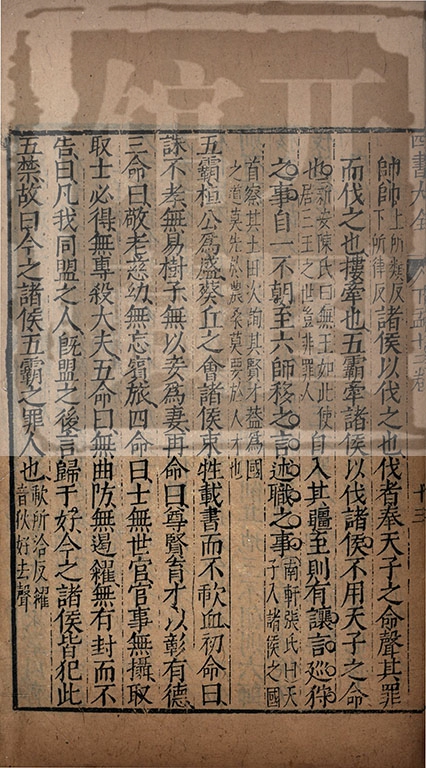 四書大全
十三
帥帥上所類反下所律反諸侯以伐之也伐者奉天子之命聲其罪
而伐之也摟牽也五霸牽諸侯以伐諸侯不用天子之命
也新安陳氏曰無王如此使居三王之世豈非罪人自入其疆至則有讓言巡狩
之事自一不朝至六師移之言述職之事南軒張氏曰天子入諸侯之國
首察其土田次詢其賢才葢為國
之道莫先於農桑莫要於人才也
五霸桓公為盛葵丘之會諸侯束牲載書而不歃血初命曰
誅不孝無易樹子無以妾為妻再命曰尊賢育才以彰有德
三命曰敬老慈幼無忘賓旅四命曰士無世官官事無攝取
取士必得無專殺大夫五命曰無曲防無遏糴無有封而不
告曰凡我同盟之人既盟之後言歸于好今之諸侯皆犯此
五禁故曰今之諸侯五霸之罪人也歃所洽反糴音狄好去聲